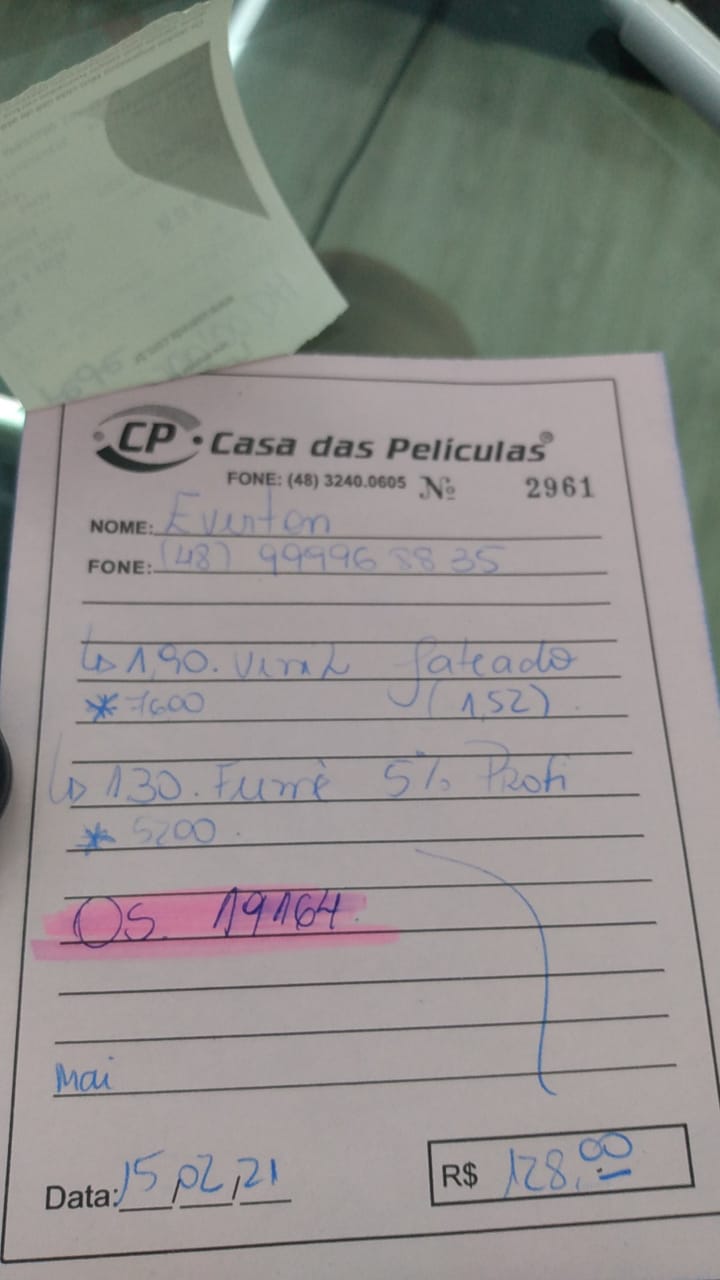 CP • Casa das Películas®
FONE: (48) 3240.0605 Nº 2961
NOME: Everton
FONE: (48) 99996 8835
↳ 1,90. Vinil Jateado
* 7600 (1,52).
↳ 130. Fumê 5% Profi
* 5200.
OS. 19164.
Mai
Data: 15,02,21
R$ 128,00